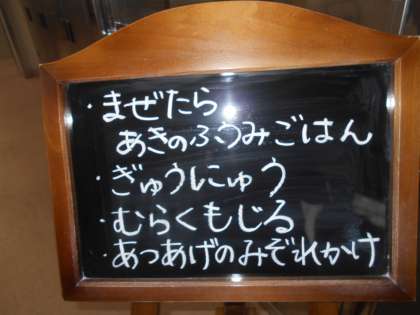 ・まぜたら
あきのふうみごはん
・ぎゅうにゅう
・むらくもじる
・あつあげのみぞれかけ